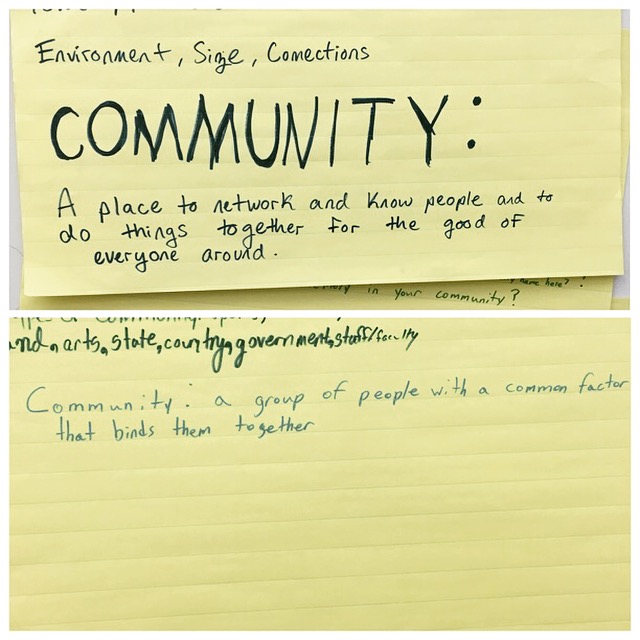 Environment, Size, Connections
COMMUNITY:
A place to network and know people and to
do things together for the good of
everyone around.
in your community?
arts, state, country, government, staff/faculty
Community: a group of people with a common factor
that binds them together